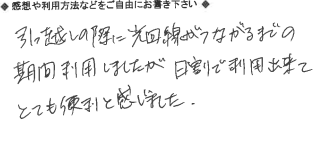 ◆ 感想や利用方法などをご自由にお書き下さい ◆
引っ越しの際に光回線がつながるまでの
期間利用しましたが 日割で利用出来て
とても便利と感じました.